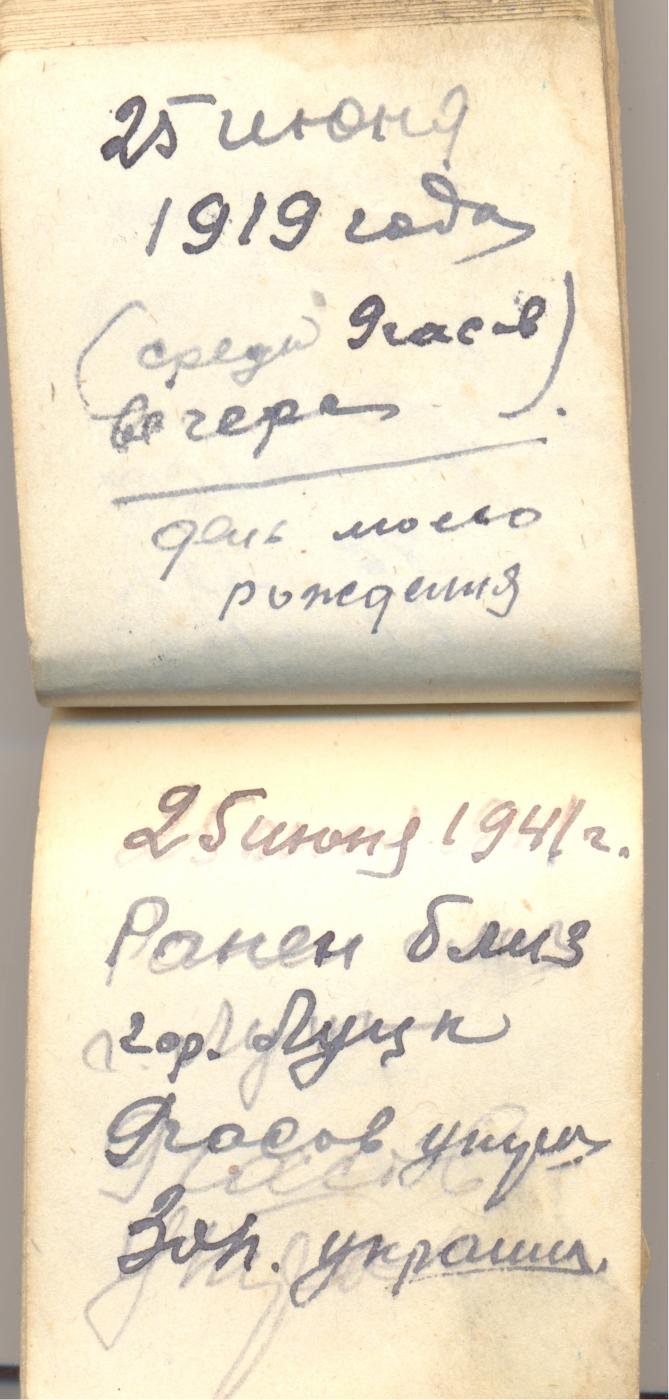 25 июня
1919 года
(среда 9 часов)
вечера .
день моего
рождения
25 июня 1941 г.
Ранен близ
гор. Луцк
9 часов утра
Зап. украина.